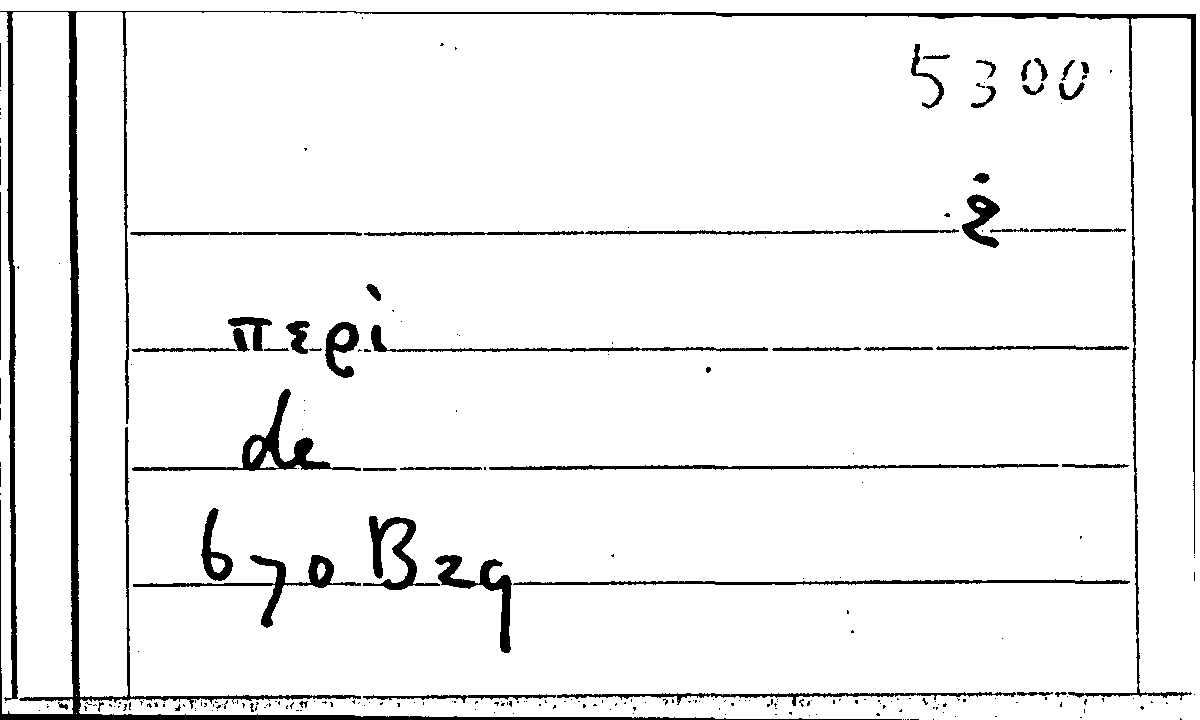 5300
περὶ
de
670 B29